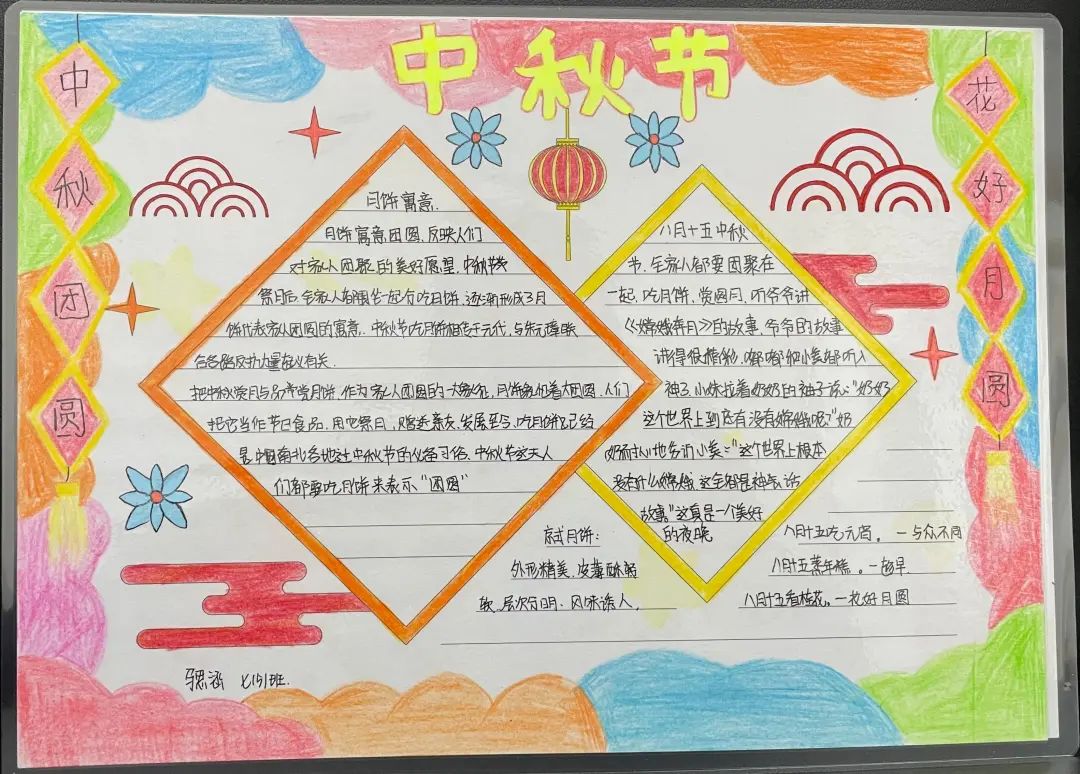 中秋节
中秋团圆
花好月圆
月饼寓意.
月饼寓意团圆,反映人们
对家人团聚的美好愿望,中秋节
祭月后,全家人都围坐一起吃月饼,逐渐形成了月
饼代表家人团圆的寓意.中秋节吃月饼相传于元代,与朱元璋联
合各路反抗力量起义有关.
把中秋赏月与品尝月饼,作为家人团圆的一大象征,月饼象征着大团圆,人们
把它当作节日食品,用它祭月,赠送亲友.发展至今,吃月饼已经
是中国南北各地过中秋节的必备习俗,中秋节这天人
们都要吃月饼来表示“团圆”
八月十五中秋
节,全家人都要团聚在
一起,吃月饼,赏圆月,听爷爷讲
《嫦娥奔月》的故事,爷爷的故事
讲得很精彩,都听入
神了,小妹扯着奶奶的袖子说:“奶奶
这个世界上到底有没有嫦娥呢?”奶
奶告诉小美:“这个世界上根本
没有什么嫦娥,这全都是神话
故事.”这真是一个美好
的夜晚
京式月饼:
外形精美,皮薄酥
软,层次分明,风味诱人,
八月十五吃元宵。一与众不同
八月十五蒸年糕。一趁早
八月十五看桂花。一花好月圆
骆涵 七(5)班.